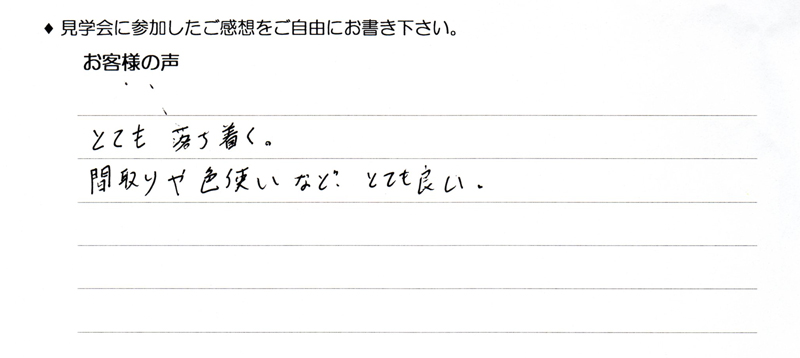 ♦ 見学会に参加したご感想をご自由にお書き下さい。
お客様の声
とても 落ち着く。
間取りや色使いなど、とても良い。